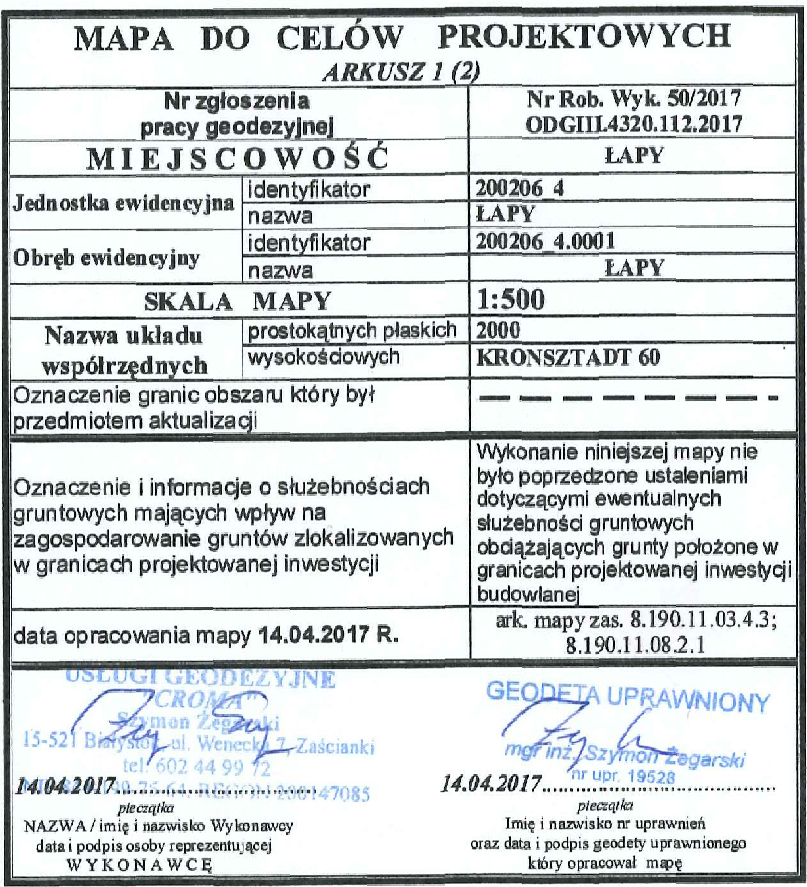 MAPA DO CELÓW PROJEKTOWYCH
ARKUSZ 1 (2)
Nr zgłoszenia
pracy geodezyjnej
Nr Rob. Wyk. 50/2017
ODGIII.4320.112.2017
MIEJSCOWOŚĆ
ŁAPY
Jednostka ewidencyjna
identyfikator
200206_4
nazwa
ŁAPY
Obręb ewidencyjny
identyfikator
200206_4.0001
nazwa
ŁAPY
SKALA MAPY
1:500
Nazwa układu
współrzędnych
prostokątnych płaskich
2000
wysokościowych
KRONSZTADT 60
Oznaczenie granic obszaru który był
przedmiotem aktualizacji
Oznaczenie i informacje o służebnościach
gruntowych mających wpływ na
zagospodarowanie gruntów zlokalizowanych
w granicach projektowanej inwestycji
Wykonanie niniejszej mapy nie
było poprzedzone ustaleniami
dotyczącymi ewentualnych
służebności gruntowych
obciążających grunty położone w
granicach projektowanej inwestycji
budowlanej
data opracowania mapy 14.04.2017 R.
ark. mapy zas. 8.190.11.03.4.3;
8.190.11.08.2.1
USŁUGI GEODEZYJNE
"CROMA"
Szymon Żegarski
15-521 Białystok, ul. Wenecka 7, Zaścianki
tel. 602 44 99 72
REGON 200147085
14.04.2017
pieczątka
NAZWA / imię i nazwisko Wykonawcy
data i podpis osoby reprezentującej
WYKONAWCĘ
GEODETA UPRAWNIONY
mgr inż. Szymon Żegarski
nr upr. 19528
14.04.2017
pieczątka
Imię i nazwisko nr uprawnień
oraz data i podpis geodety uprawnionego
który opracował mapę